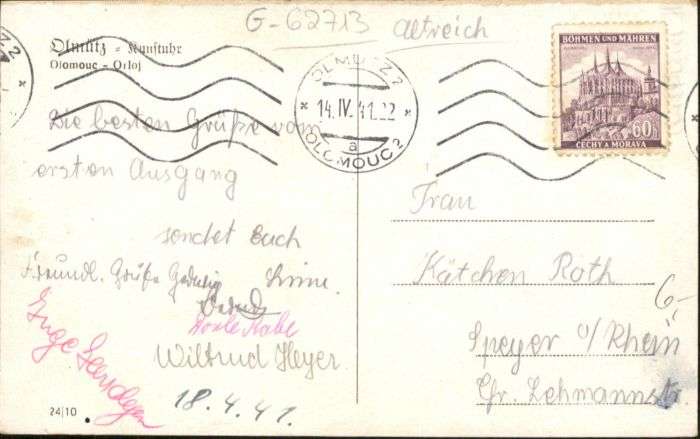 G-62713 Altreich
Olmütz - Kunstuhr
Olomouc - Orloj
OLMÜTZ 2
* 14.IV.41.22 *
a
OLOMOUC 2
BÖHMEN UND MÄHREN
60
ČECHY A MORAVA
Die besten Grüße vom
ersten Ausgang
sendet Euch
Freundl. Grüße
Wiltrud Heyer
Inge
18.4.41.
24|10
Frau
Kätchen Roth
6,-
Speyer a/Rhein
Fr. Lehmannstr.